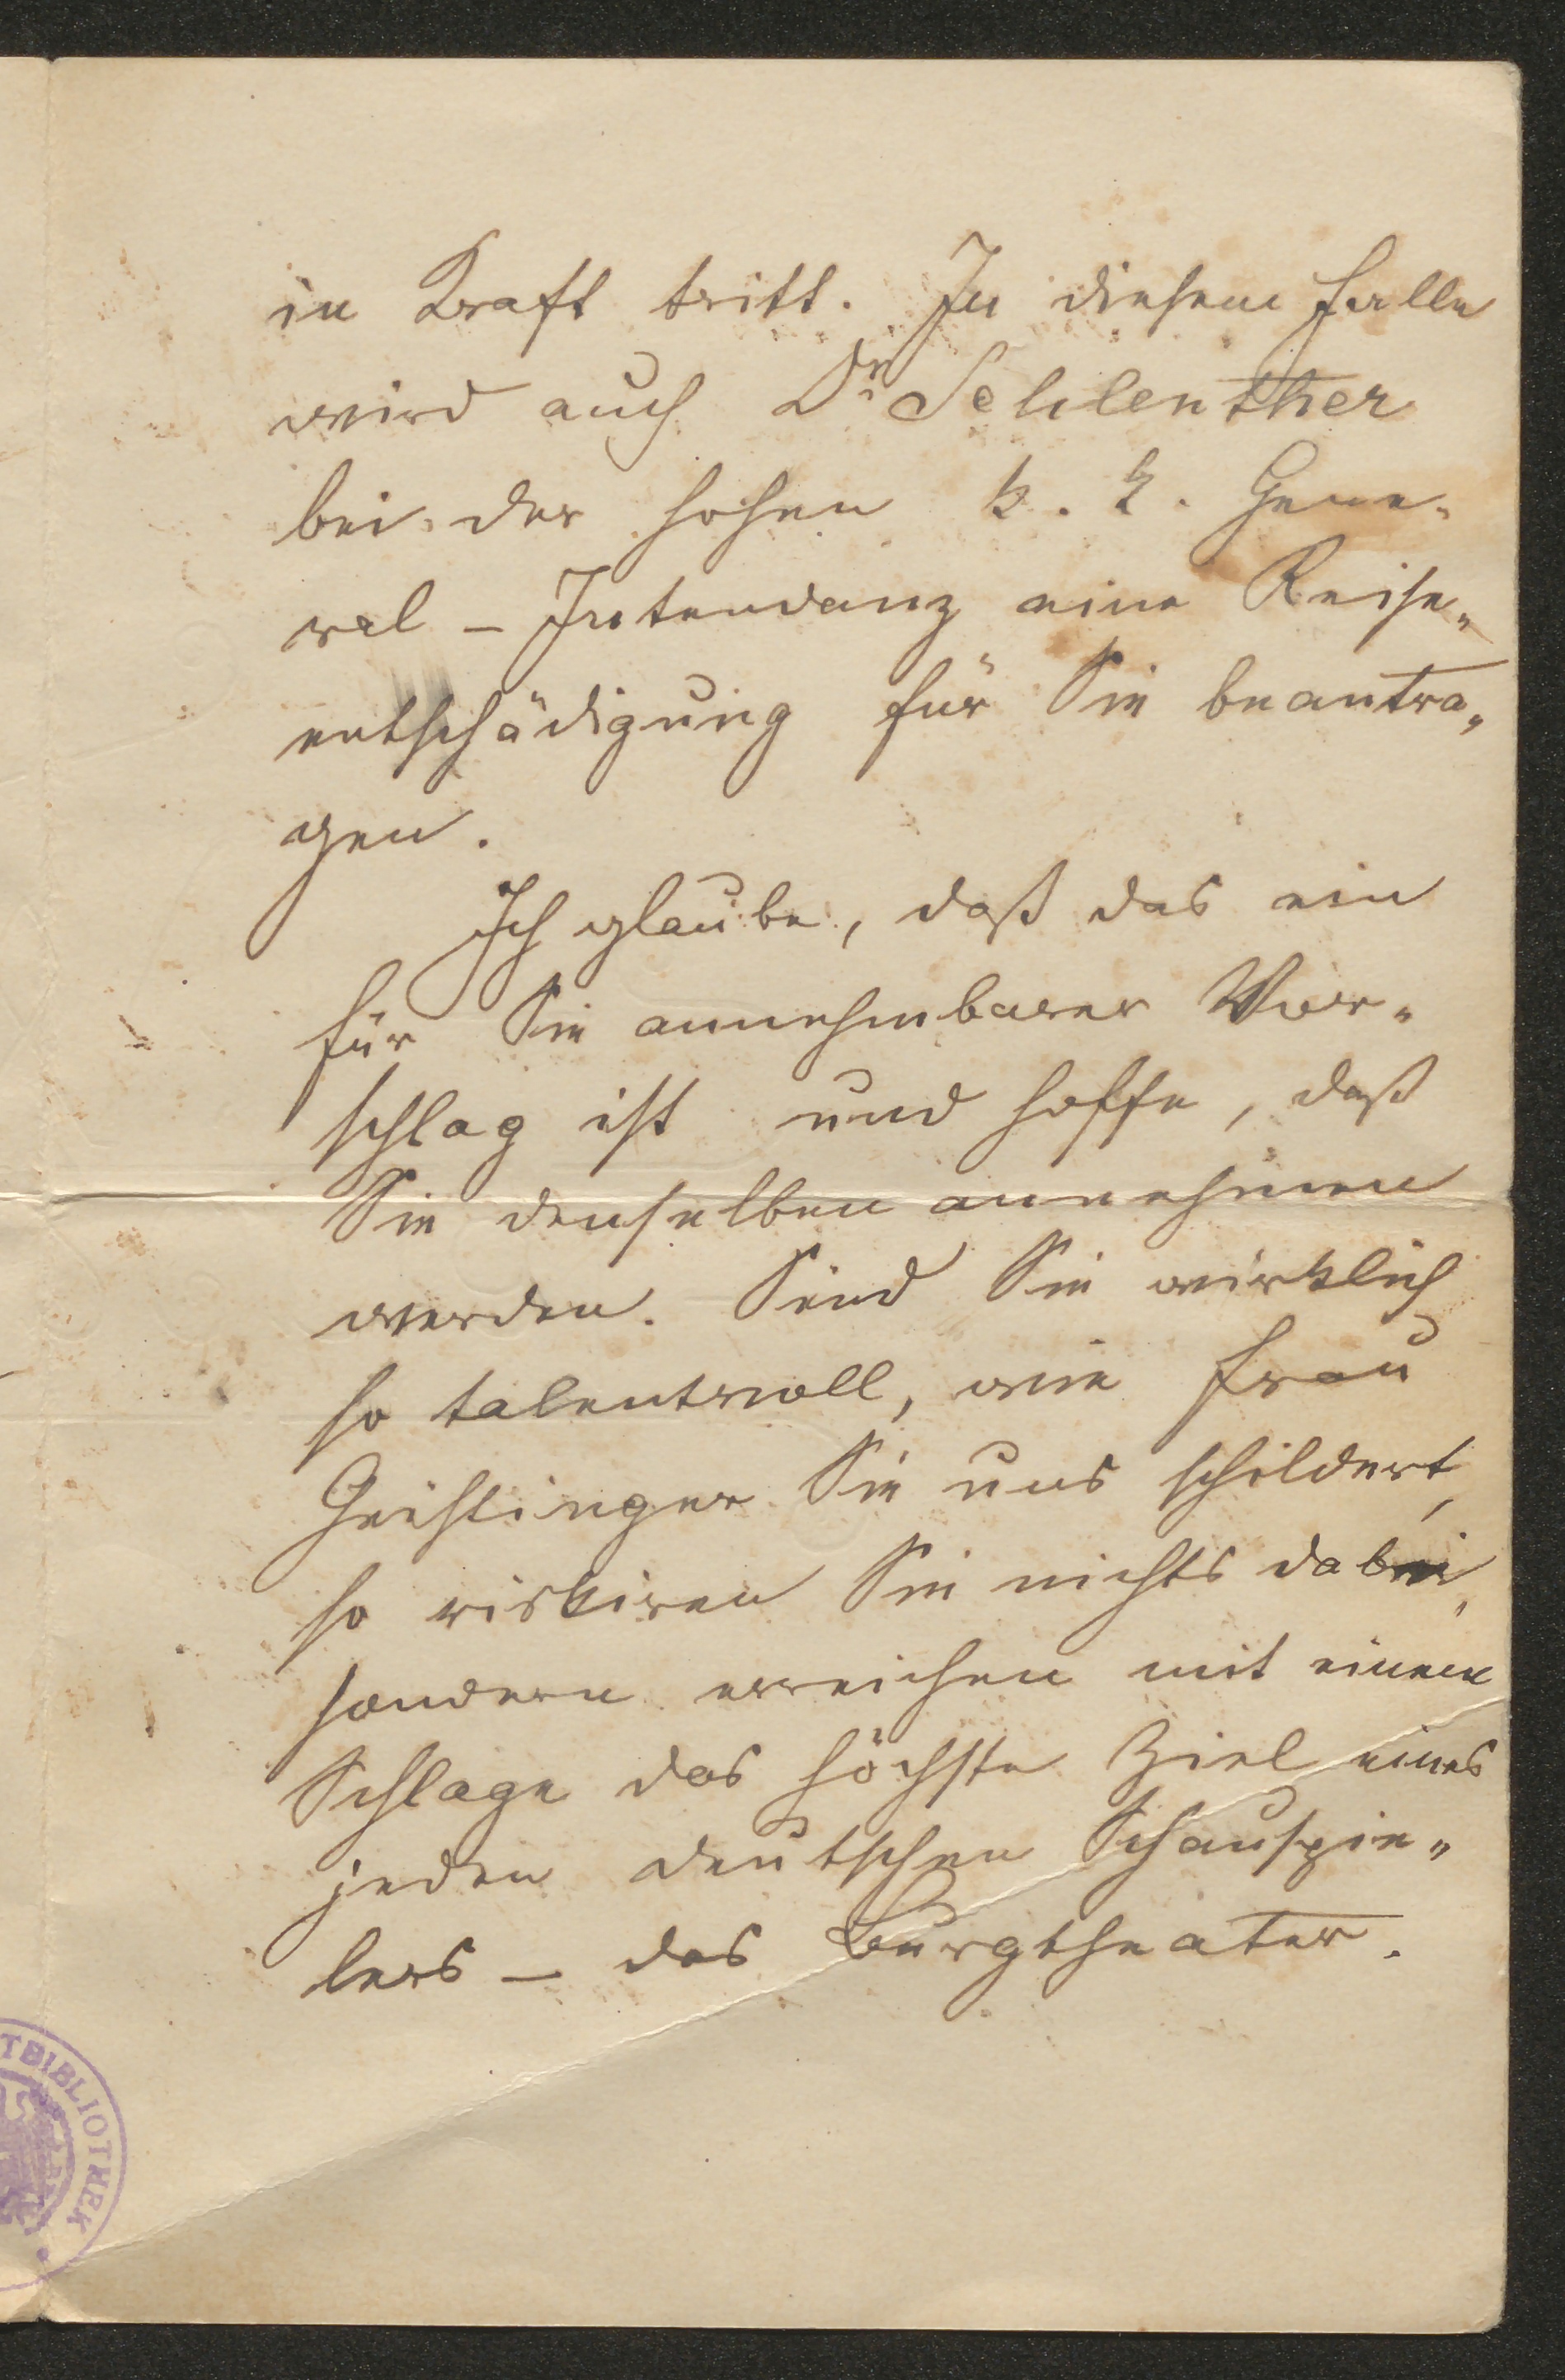 in Kraft tritt. In diesem Falle
wird auch Dr Schlenther
bei der hohen k. k. Gene-
ral-Intendanz eine Reise-
entschädigung für Sie beantra-
gen.
Ich glaube, daß das ein
für Sie annehmbarer Vor-
schlag ist und hoffe, daß
Sie denselben annehmen
werden. Sind Sie wirklich
so talentvoll, wie Frau
Geistinger Sie uns schildert,
so riskiren Sie nichts dabei,
sondern erreichen mit einem
Schlage das höchste Ziel eines
jeden deutschen Schauspie-
lers – das Burgtheater.
TBIBLIOTHEK